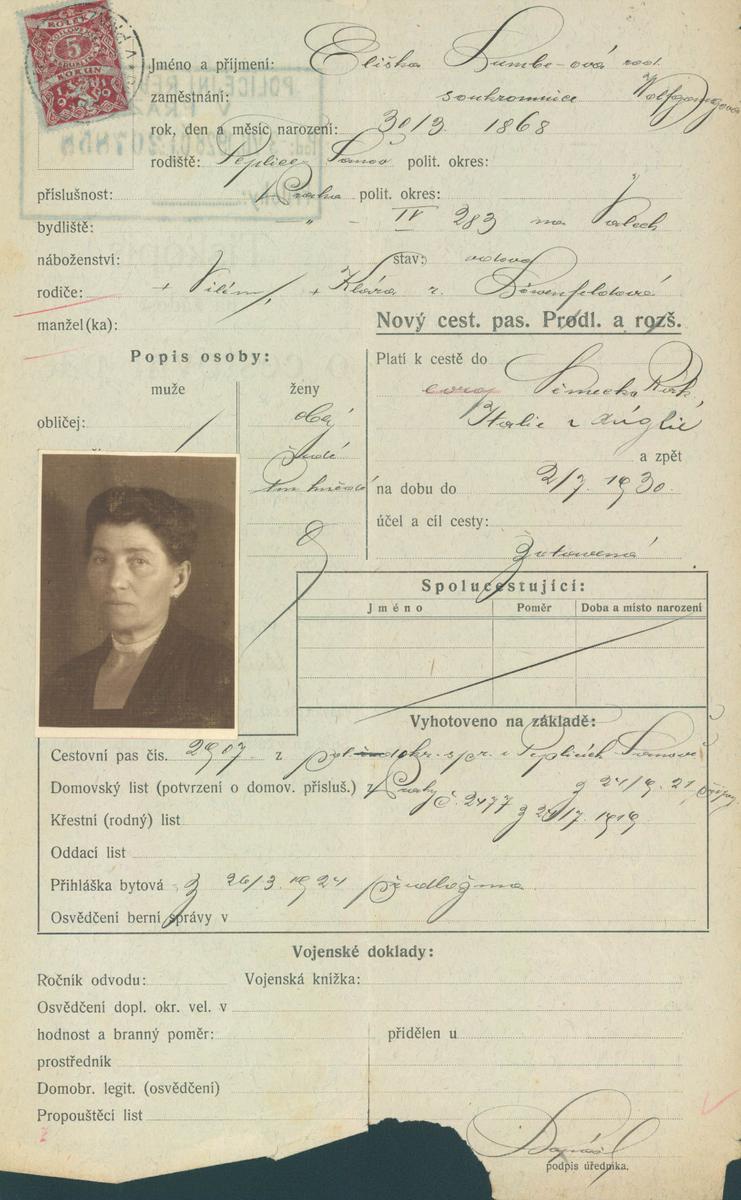 KOLEK
5
KORUN
1919
Jméno a příjmení: Eliška roz.
zaměstnání: soukromnice Wolfgangová
rok, den a měsíc narození: 30/3. 1868
rodiště: Teplice Šanov polit. okres:
příslušnost: Praha polit. okres:
bydliště: " - IV 283 na Valech
náboženství: stav: vdova
rodiče: + Vilém, + Klára r. Löwenfeldová
manžel(ka): Nový cest. pas. Prodl. a rozš.
Popis osoby: Platí k cestě do
muže ženy Německa Rak.
obličej: obl. Italie a Anglie
šedé a zpět
tm hnědé na dobu do 2/7. 1930.
účel a cíl cesty:
zotavená
Spolucestující:
Jméno Poměr Doba a místo narození
Vyhotoveno na základě:
Cestovní pas čís. 2907 z pol. okr. spr. v Teplicích Šanově
Domovský list (potvrzení o domov. přísluš.) z Prahy č. 2477 z 24/9. 21
Křestní (rodný) list z 1919
Oddací list
Přihláška bytová z 26/3. 1924 předložena
Osvědčení berní správy v
Vojenské doklady:
Ročník odvodu: Vojenská knížka:
Osvědčení dopl. okr. vel. v
hodnost a branný poměr: přidělen u
prostředník
Domobr. legit. (osvědčení)
Propouštěcí list
podpis úředníka.